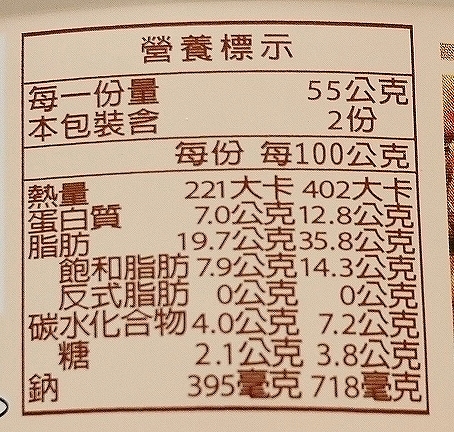 營養標示
每一份量 55公克
本包裝含 2份
每份 每100公克
熱量 221大卡 402大卡
蛋白質 7.0公克 12.8公克
脂肪 19.7公克 35.8公克
飽和脂肪 7.9公克 14.3公克
反式脂肪 0公克 0公克
碳水化合物 4.0公克 7.2公克
糖 2.1公克 3.8公克
鈉 395毫克 718毫克